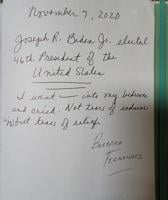 November 7, 2020
Joseph R. Biden Jr. elected
46th President of the
United States
I went into my bedroom
and cried. Not tears of sadness
but tears of relief.
Barbara
Fernandez